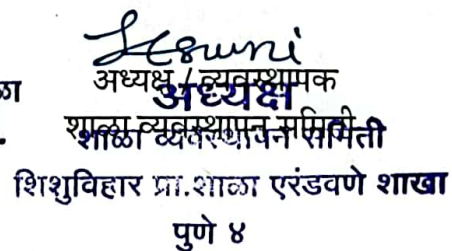 ळा
अध्यक्ष / व्यवस्थापक
अध्यक्ष
शाळा व्यवस्थापन समिती
शाळा व्यवस्थापन समिती
शिशुविहार प्रा.शाळा एरंडवणे शाखा
पुणे ४